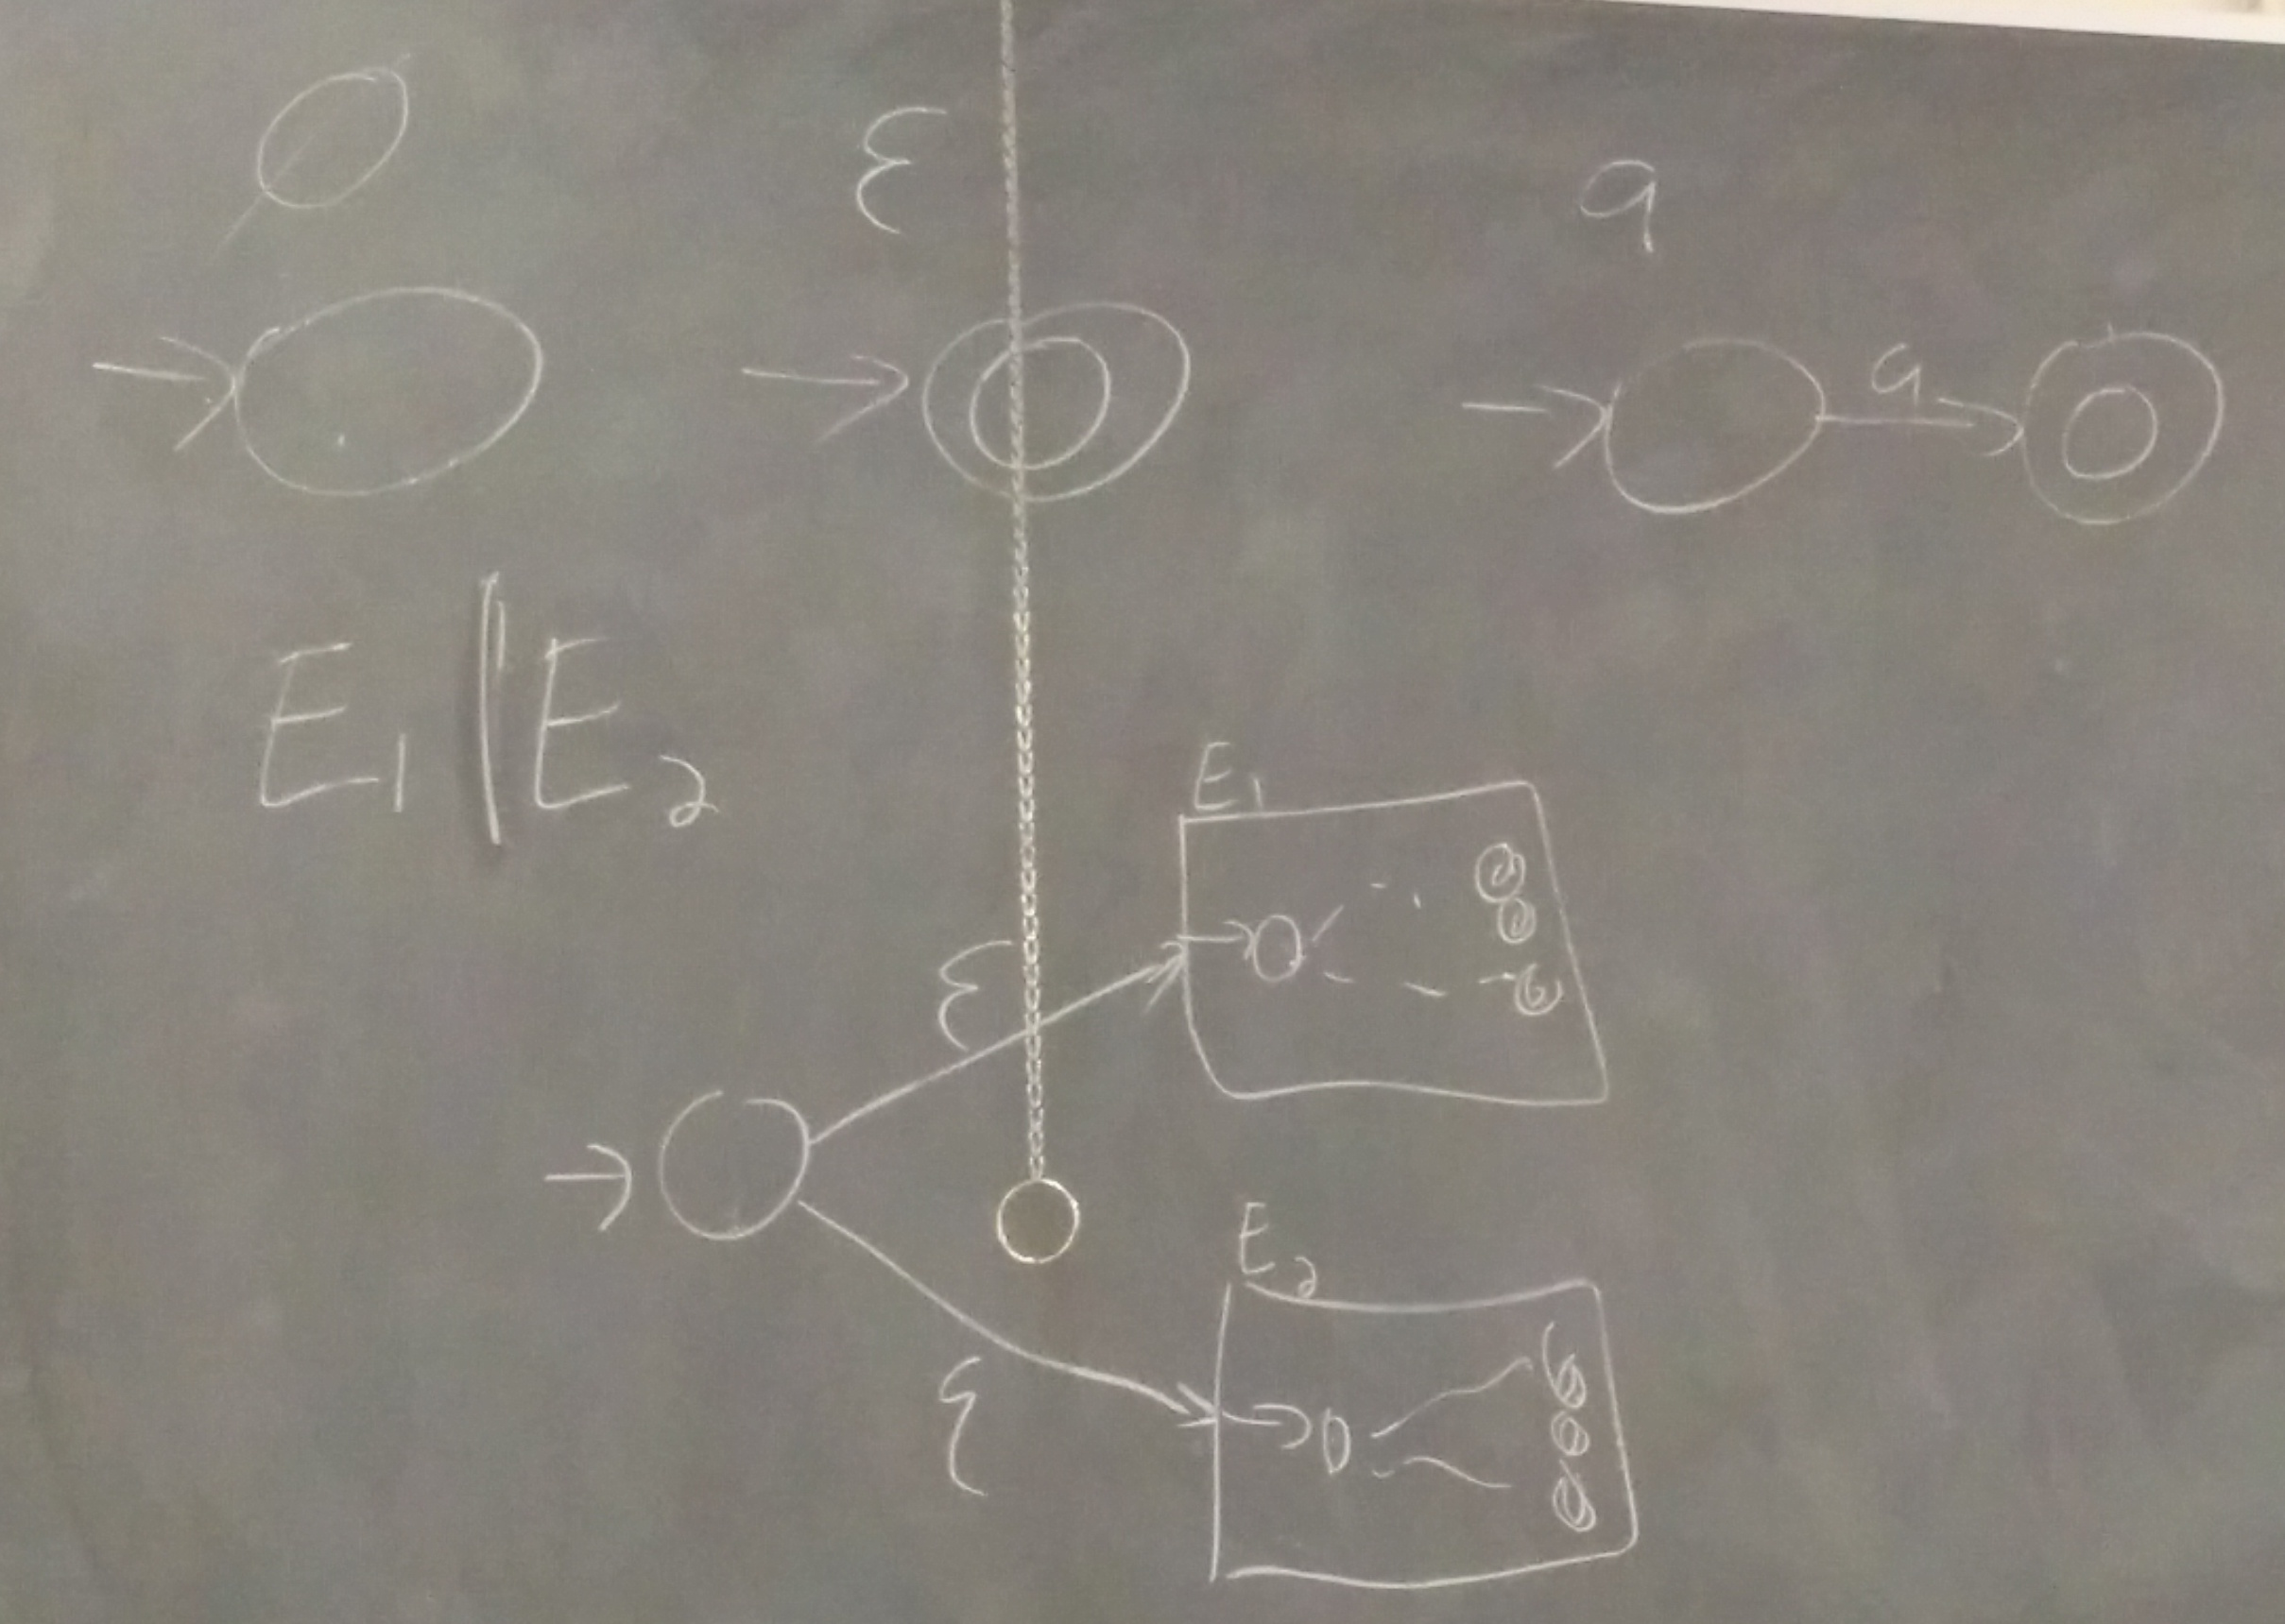 ∅ ε a
a
E₁ | E₂
E₁
ε
E₂
ε